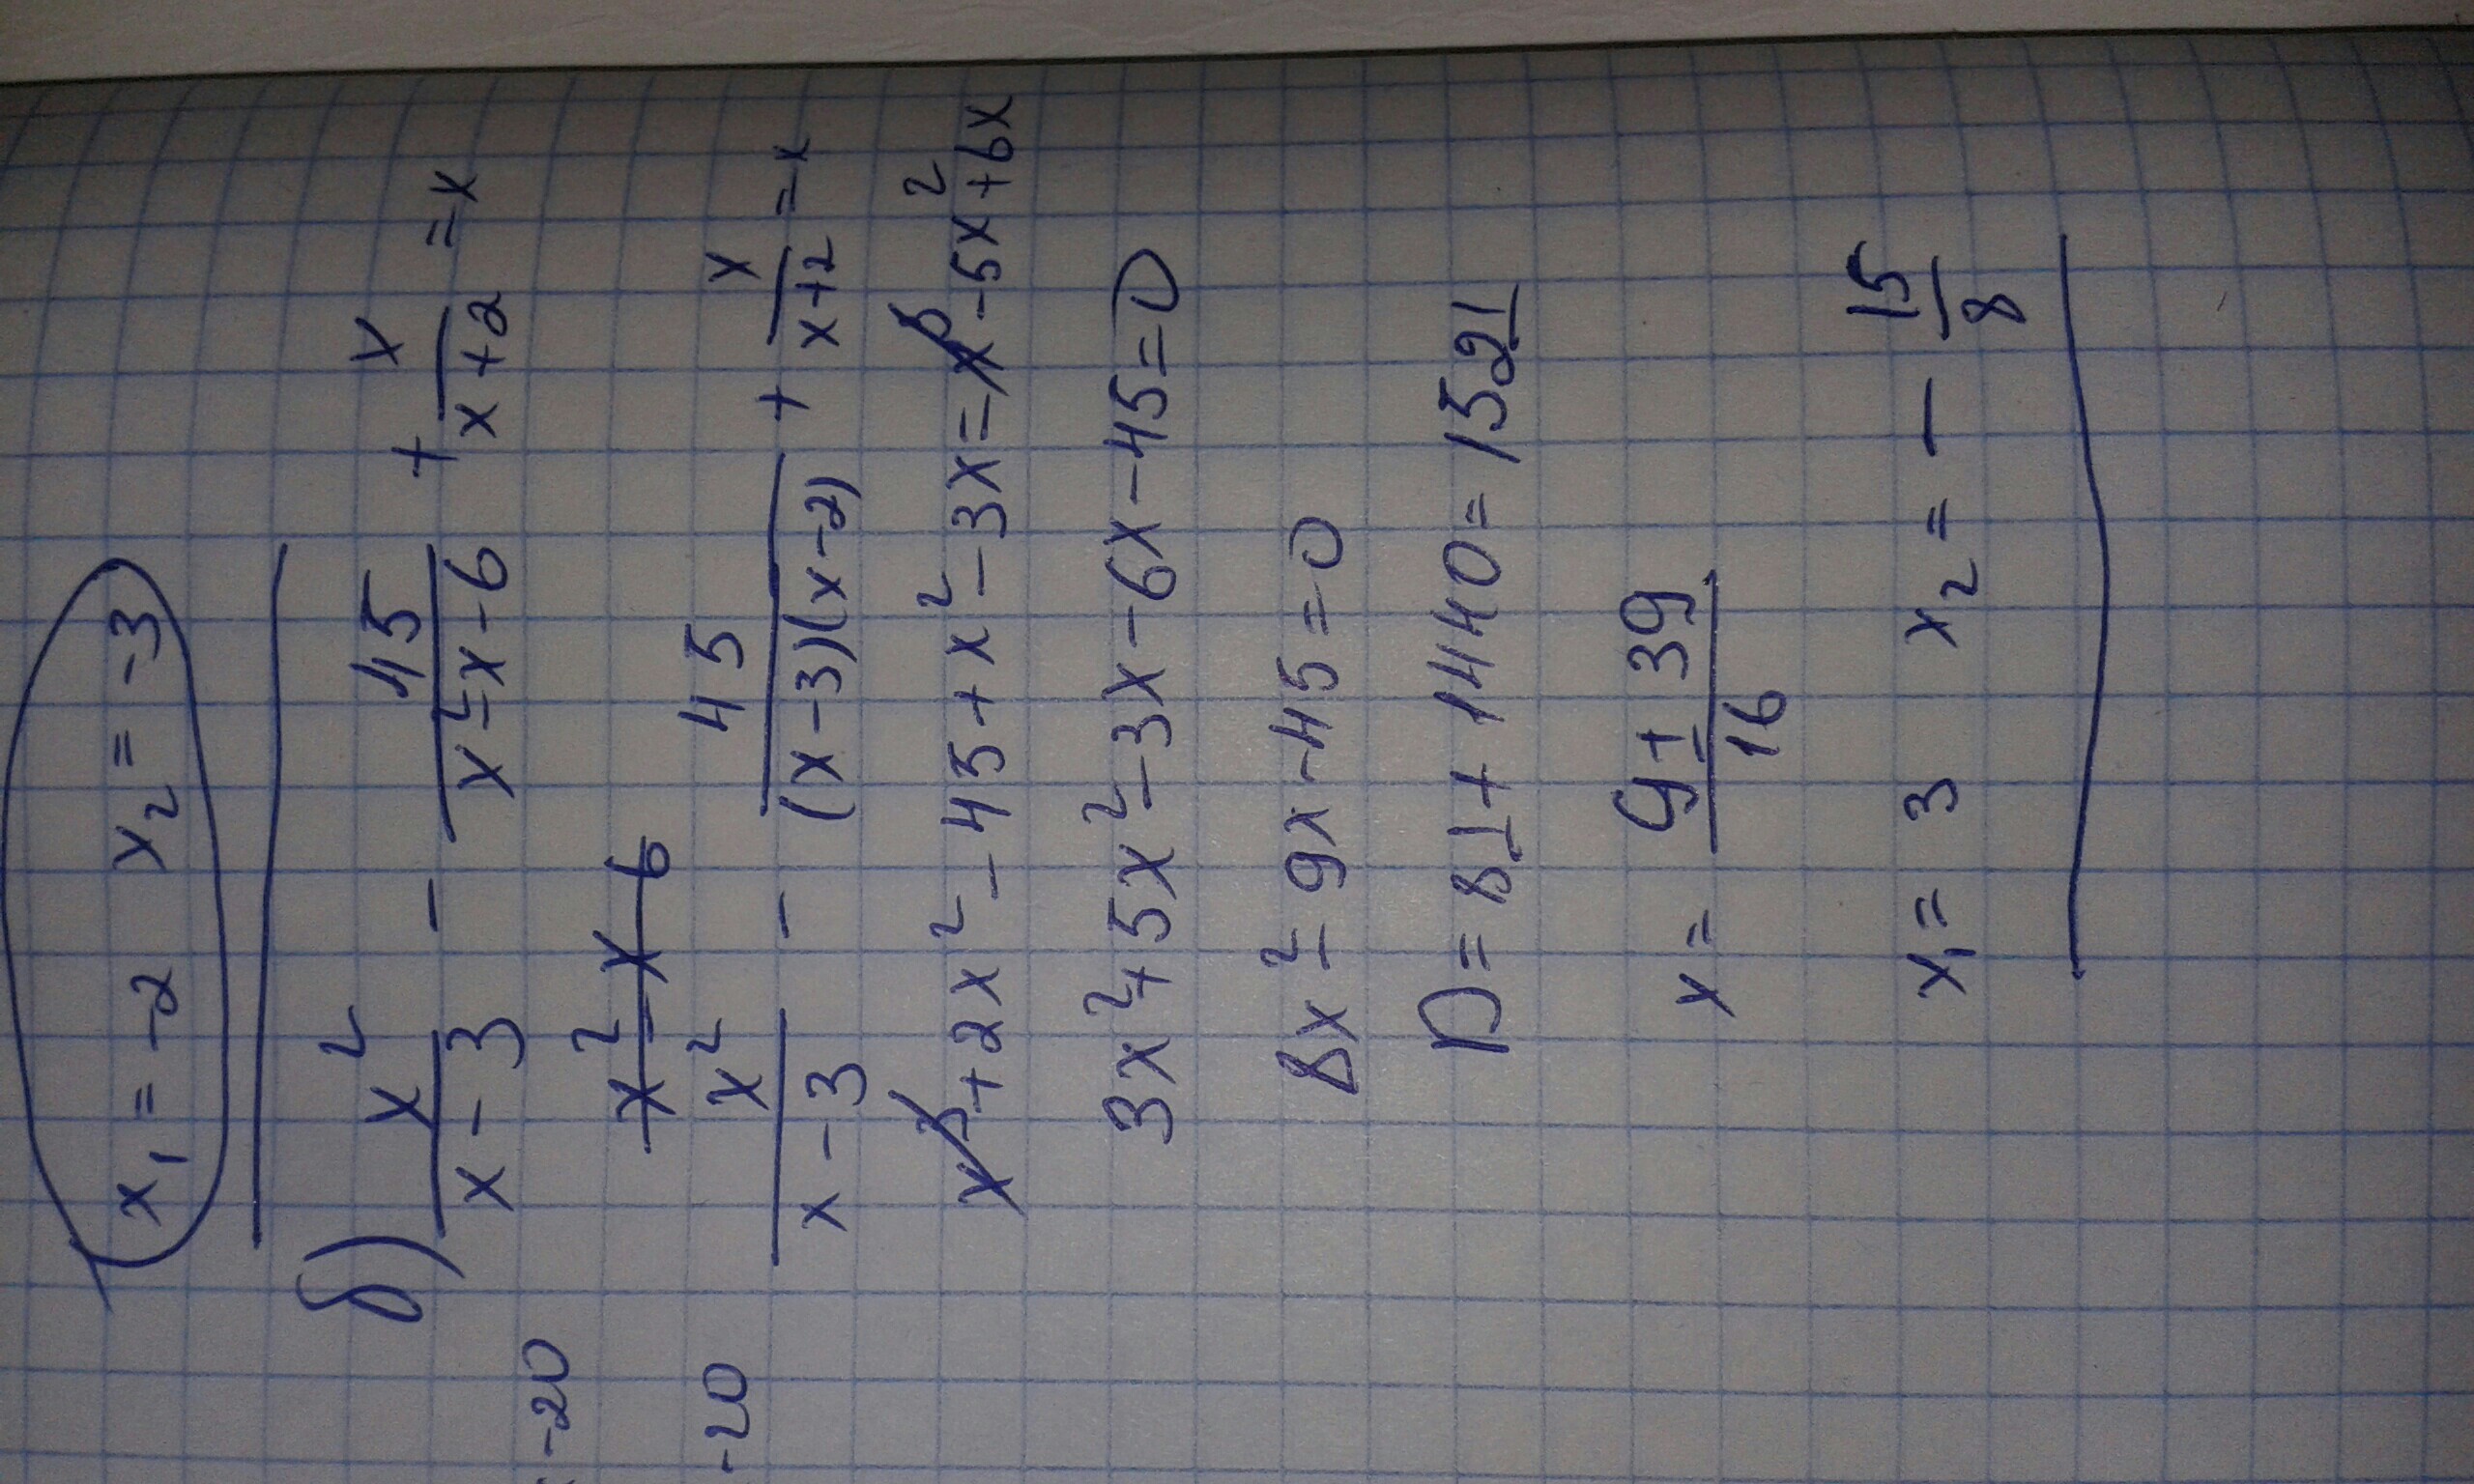 x₁ = -2 x₂ = -3
б) x²/(x-3) - 45/(x²-x-6) + x/(x+2) = x
x²-x-6
x²/(x-3) - 45/((x-3)(x-2)) + x/(x+2) = x
x³+2x²-45+x²-3x=x³-5x²+6x
3x²+5x²-3x-6x-45=0
8x²-9x-45=0
D=81+1440=1521
x= (9±39)/16
x₁= 3 x₂= -15/8
-20
-20